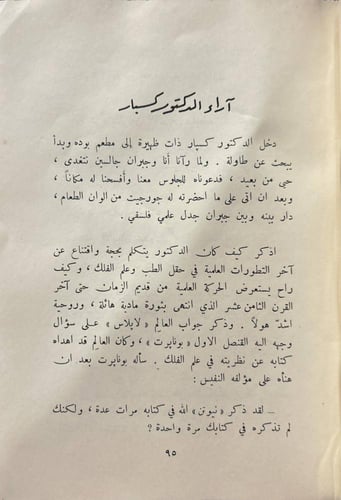 آراء الدكتور كسبار
دخل الدكتور كسبار ذات ظهيرة إلى مطعم بوده وبدأ
يبحث عن طاولة . ولما رآنا أنا وجبران جالسين نتغدى ،
حيى من بعيد ، فدعوناه للجلوس معنا وأفسحنا له مكاناً ،
وبعد ان اتى على ما احضرته له جورجيت من الوان الطعام ،
دار بينه وبين جبران جدل علمي فلسفي .
اذكر كيف كان الدكتور يتكلم بحجة واقتناع عن
آخر التطورات العلمية في حقل الطب وعلم الفلك ، وكيف
راح يستعرض الحركة العلمية من قديم الزمان حتى آخر
القرن الثامن عشر الذي انتهى بثورة مادية هائلة ، وروحية
اشدّ هولاً . وذكر جواب العالم «لابلاس» على سؤال
وجهه اليه القنصل الاول «بونابرت» ، وكان العالم قد اهداه
كتابه عن نظريته في علم الفلك . سأله بونابرت بعد ان
هنأه على مؤلفه النفيس :
— لقد ذكر «نيوتن» الله في كتابه مرات عدة ، ولكنك
لم تذكره في كتابك مرة واحدة ؟
٩٥